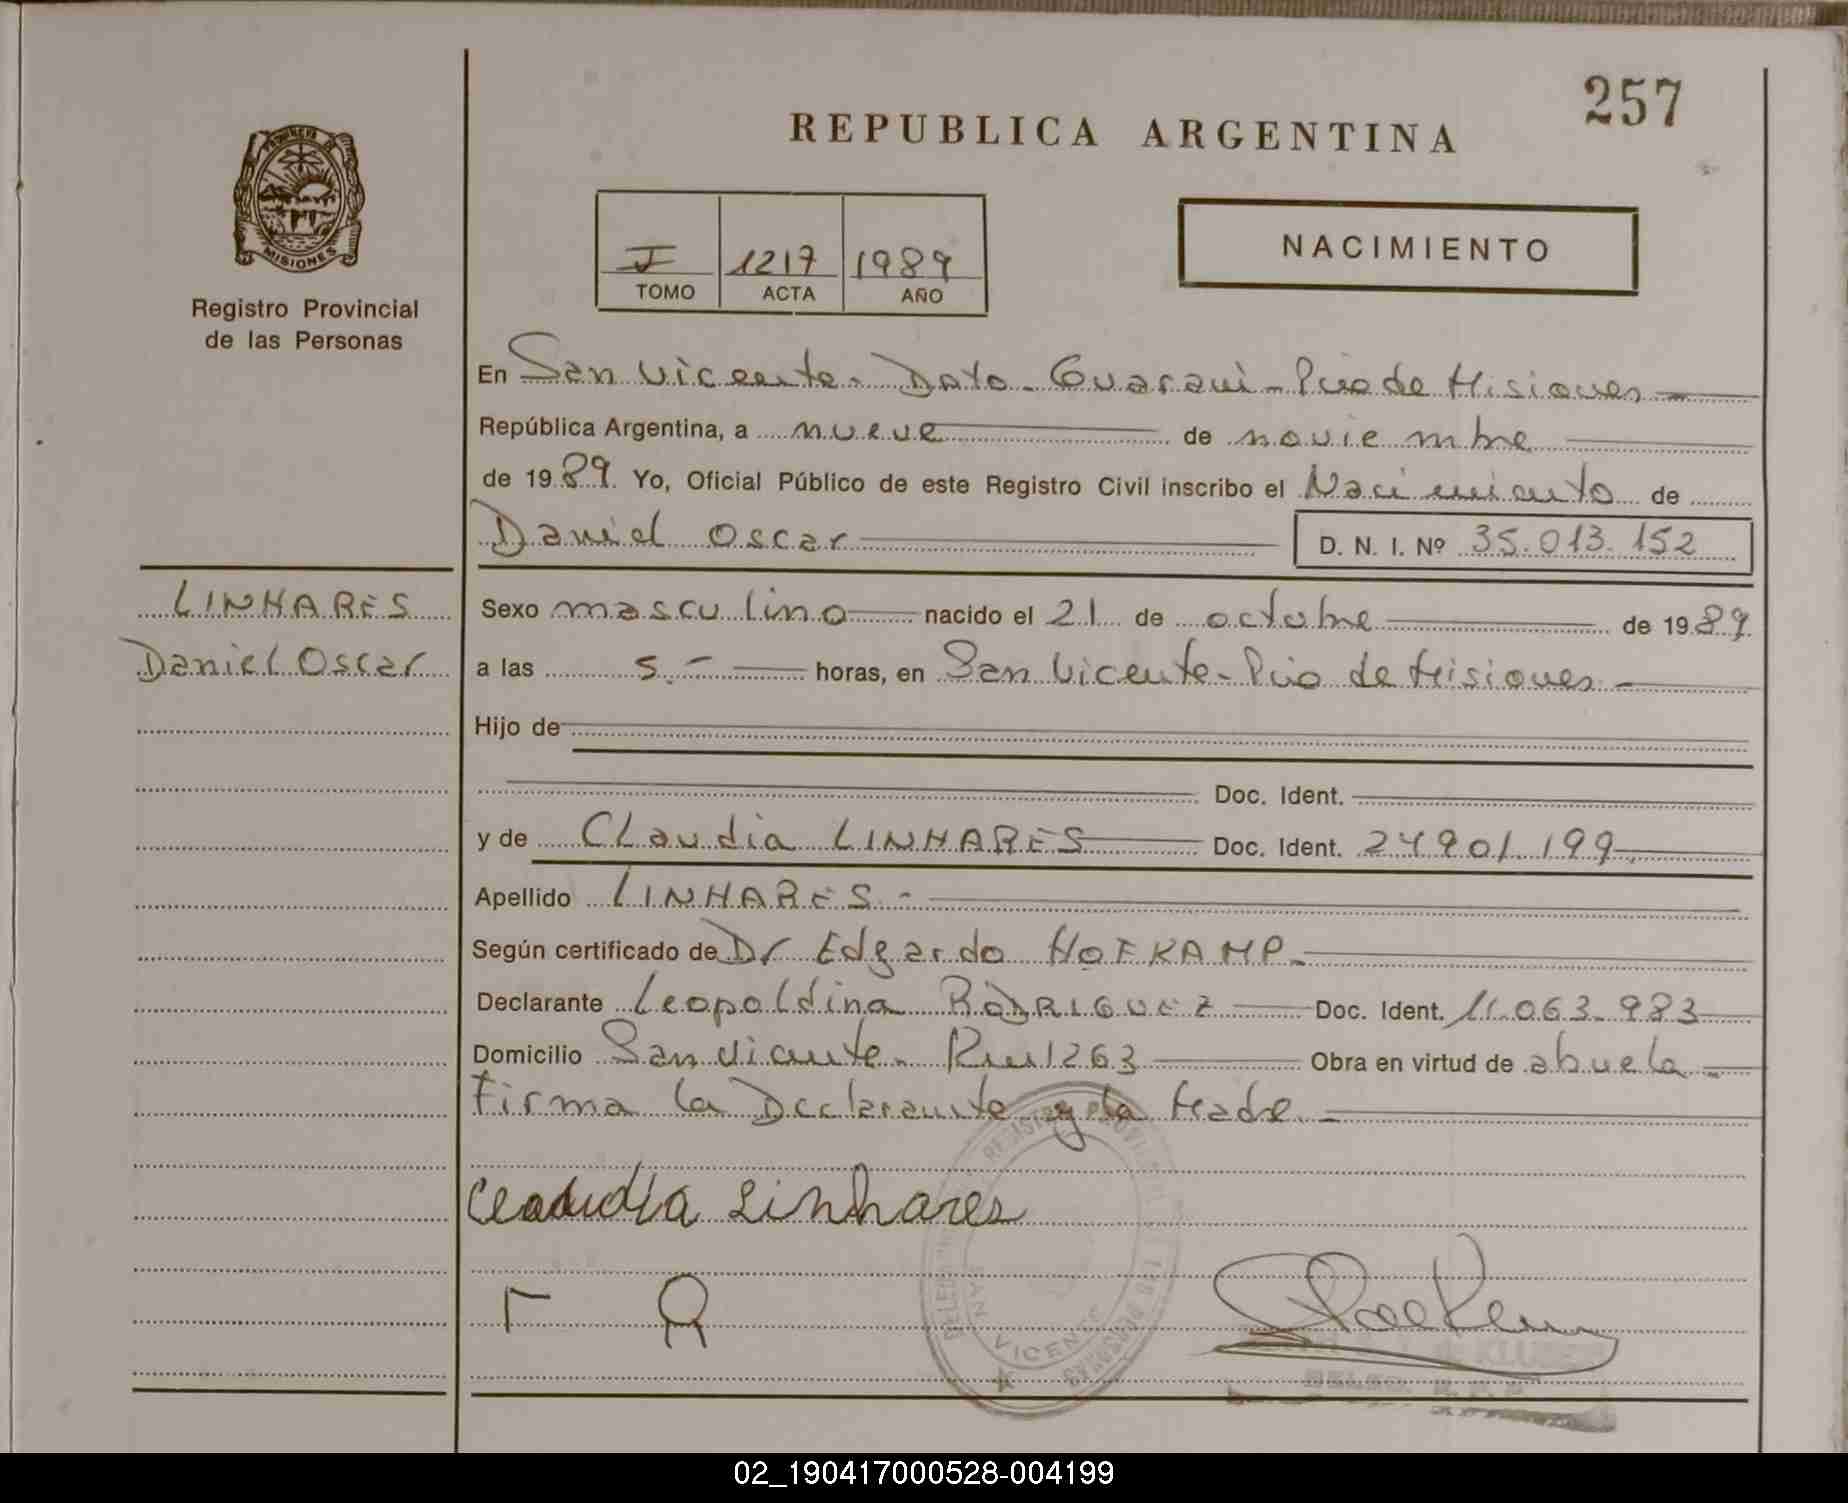 257
REPUBLICA ARGENTINA
PROVINCIA D
MISIONES
Registro Provincial
de las Personas
I 1217 1989
TOMO ACTA AÑO
NACIMIENTO
En San Vicente. Dpto. Guarani - Pcia de Misiones
República Argentina, a nueve de noviembre
de 1989. Yo, Oficial Público de este Registro Civil inscribo el Nacimiento de
Daniel Oscar D. N. I. Nº 35.013.152
LINHARES
Daniel Oscar
Sexo masculino nacido el 21 de octubre de 1989
a las 5.- horas, en San Vicente - Pcia de Misiones -
Hijo de
Doc. Ident.
y de Claudia LINHARES Doc. Ident. 24901.199
Apellido LINHARES.-
Según certificado de Dr Edgardo HOFKAMP.
Declarante Leopoldina RODRIGUEZ Doc. Ident. 11.063.983
Domicilio San Vicente. Km 1263 Obra en virtud de abuela -
Firma la Declarante y la Madre.-
Claudia Linhares
SAN VICENTE
02_190417000528-004199